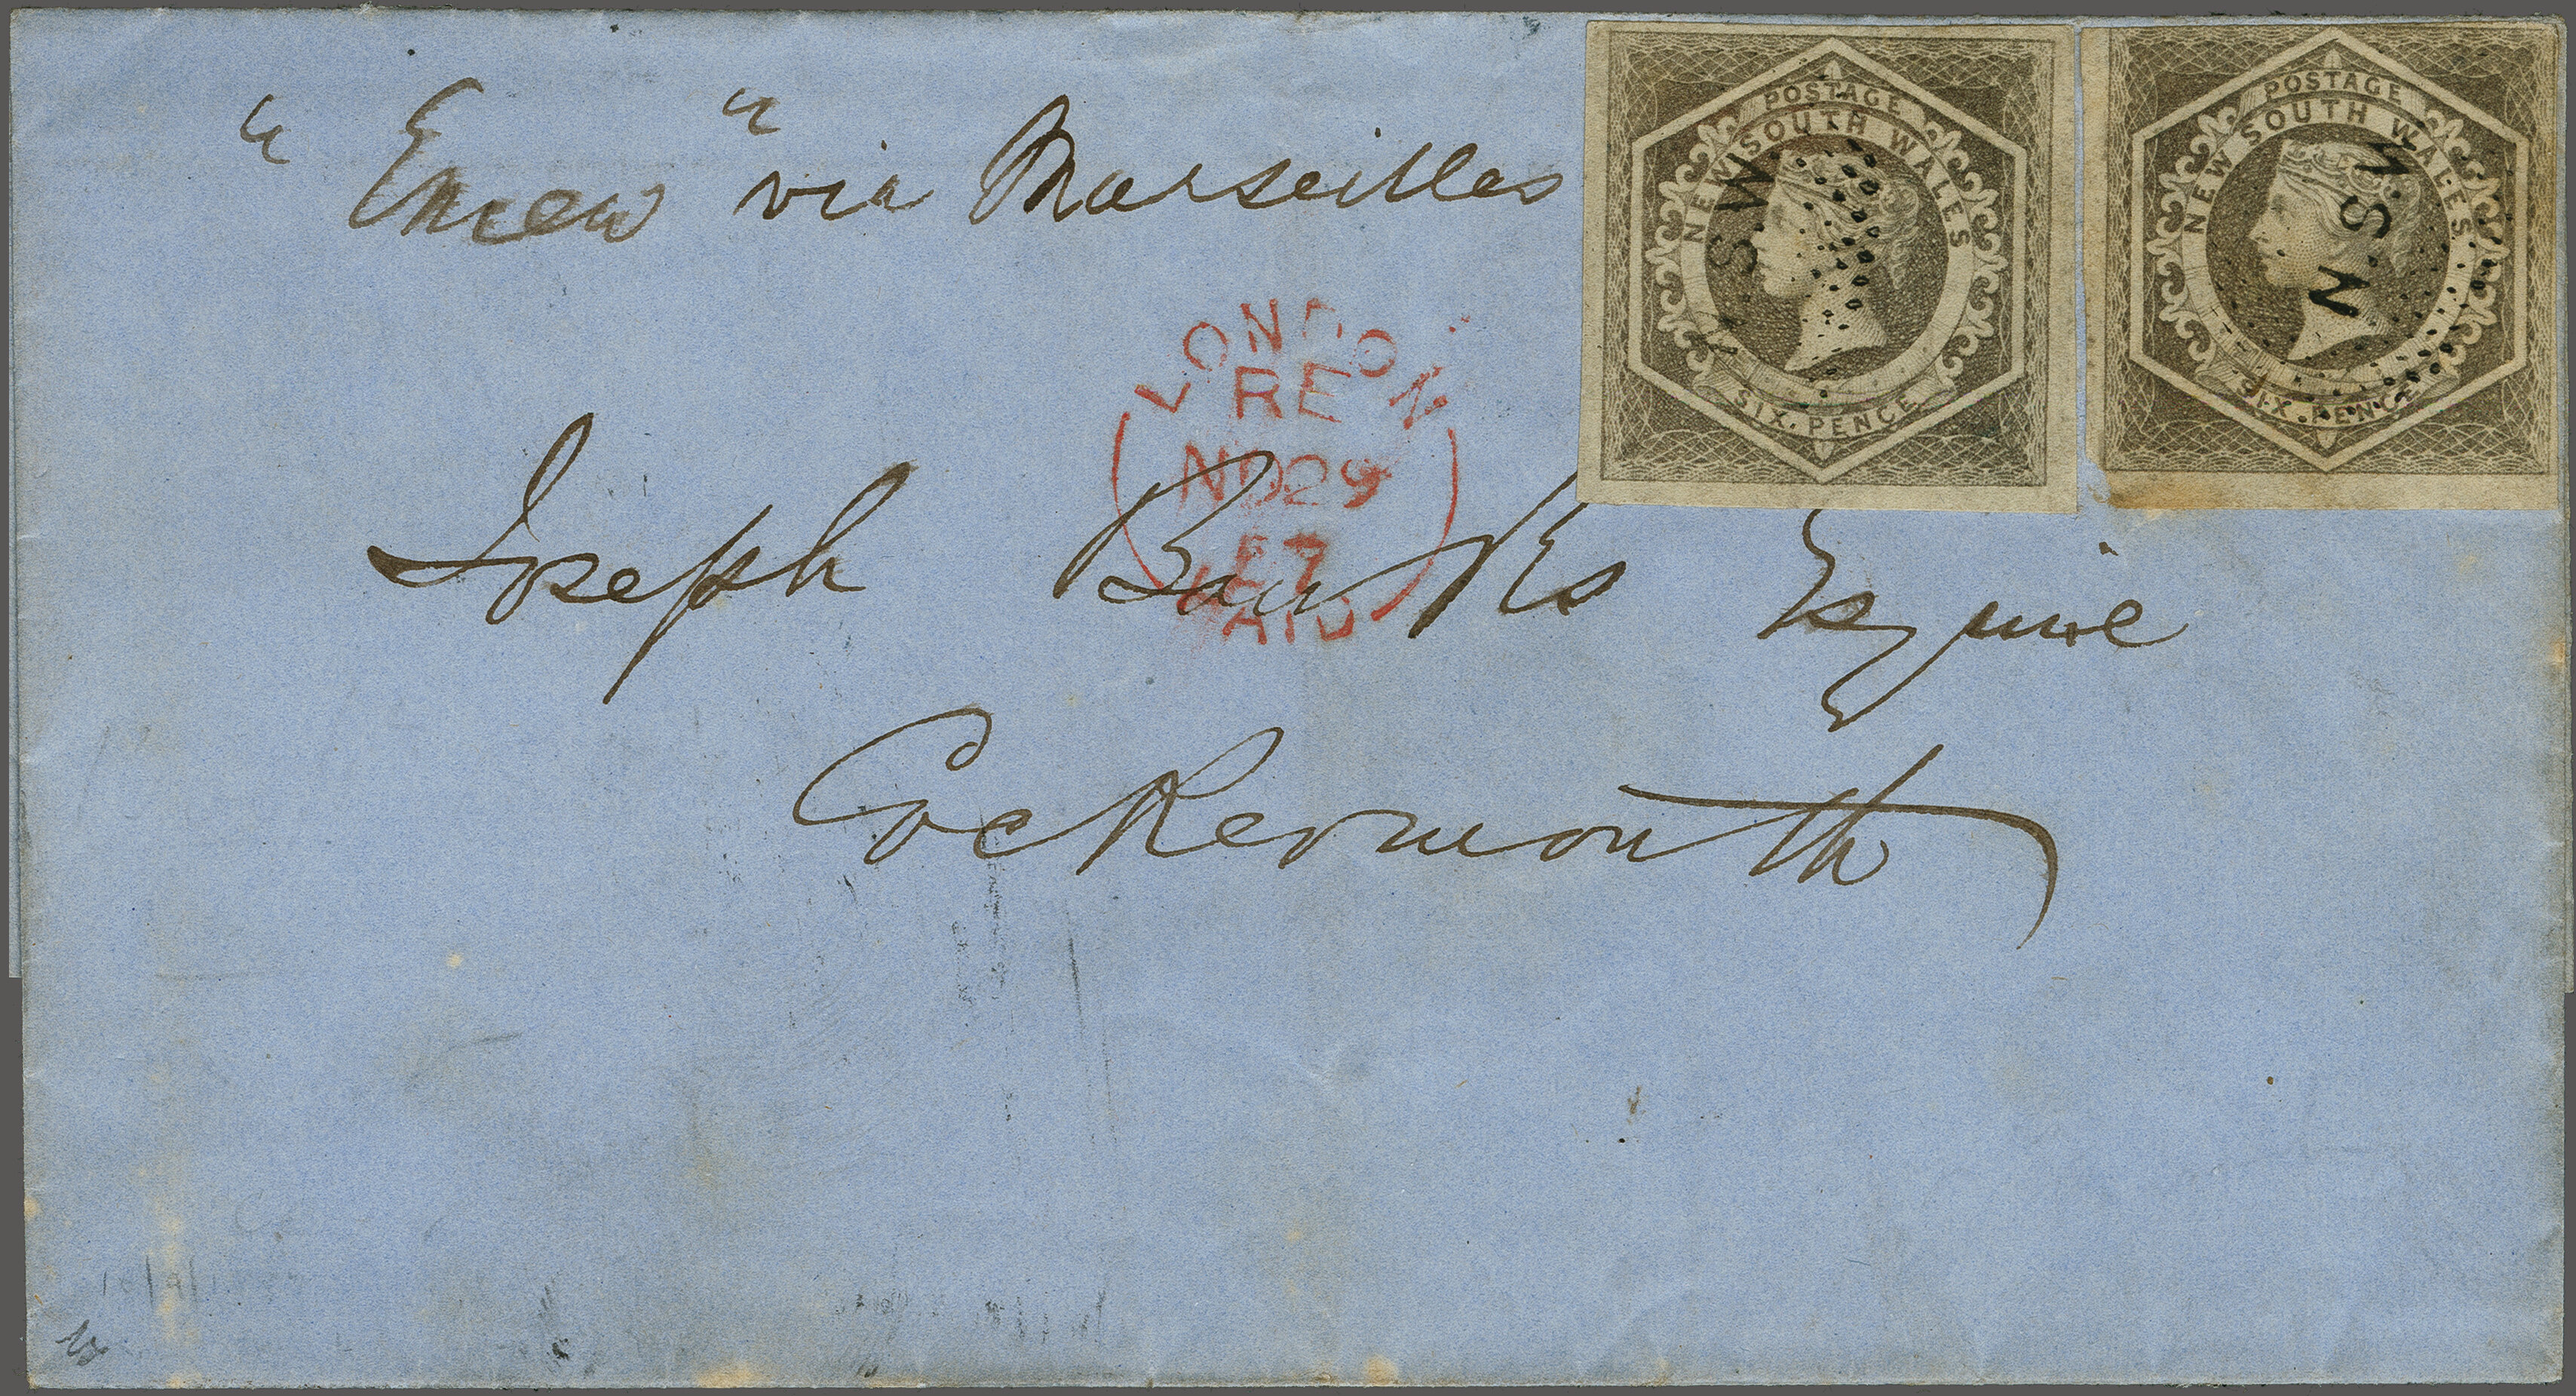 "Emeu" via Marseilles
POSTAGE
NEW SOUTH WALES
SIX. PENCE
S.W
POSTAGE
NEW SOUTH WALES
SIX. PENCE
N.S.W
LONDON
RE
NO 29
57
PAID
Joseph Banks Esquire
Cockermouth